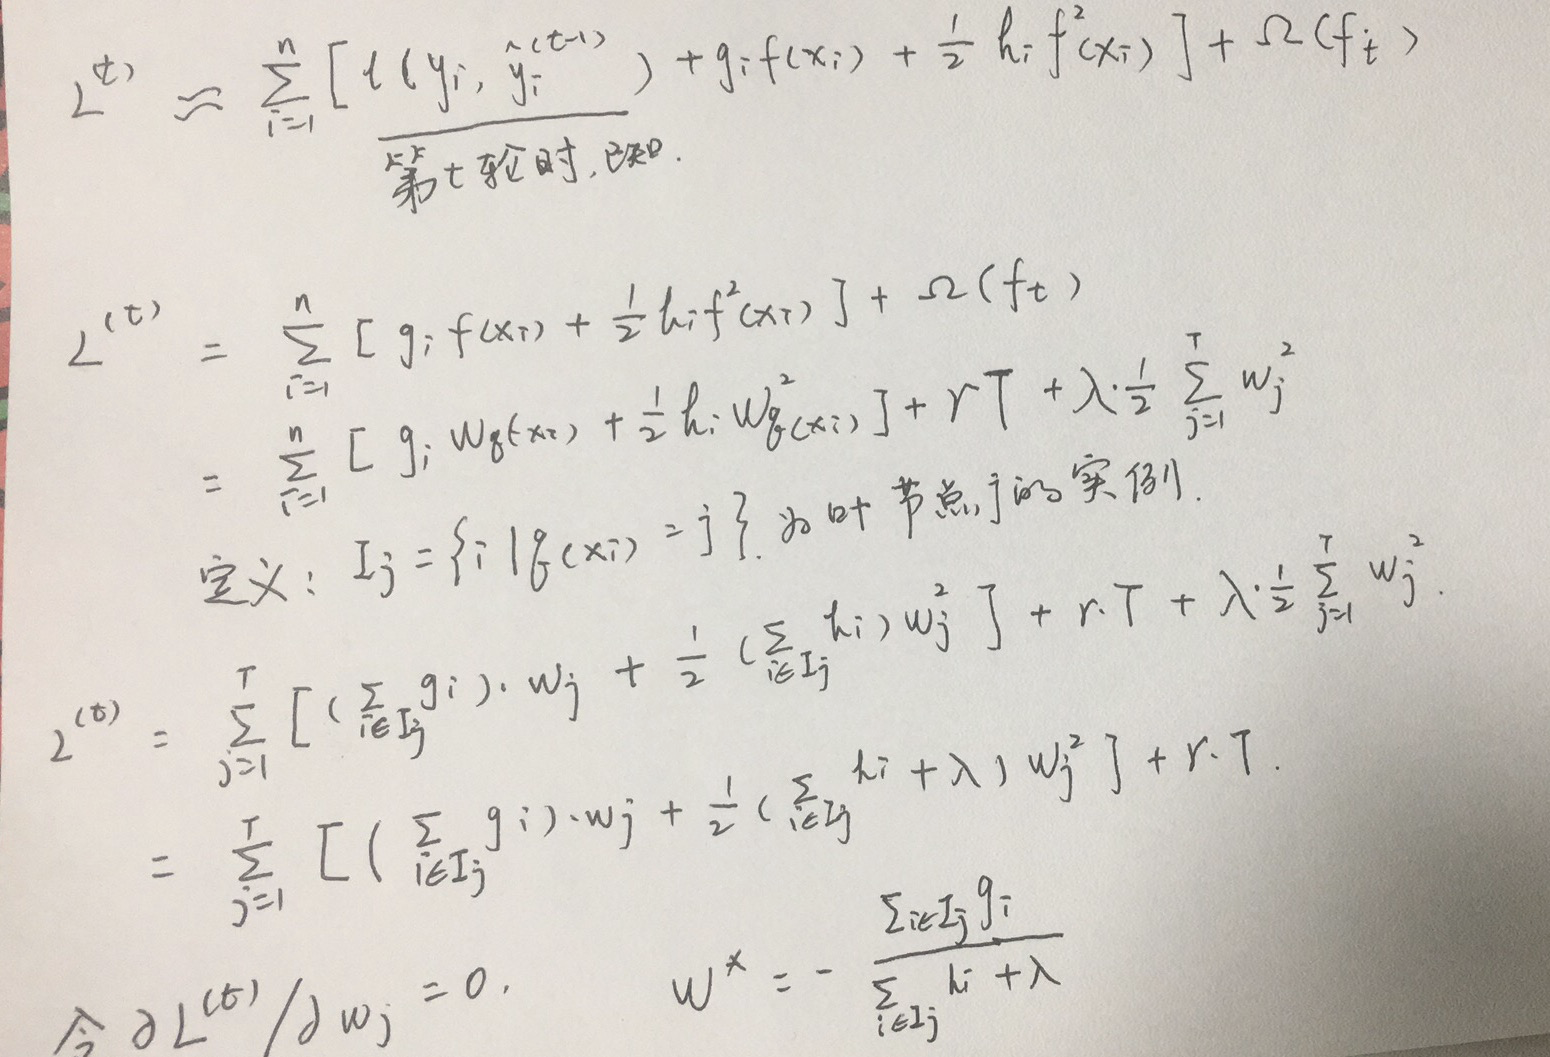 L^(t) ≈ Σ_{i=1}^{n} [ l(y_i, ŷ_i^(t-1)) + g_i f(x_i) + 1/2 h_i f²(x_i) ] + Ω(f_t)
第t轮时,已知.
L^(t) = Σ_{i=1}^{n} [ g_i f(x_i) + 1/2 h_i f²(x_i) ] + Ω(f_t)
= Σ_{i=1}^{n} [ g_i w_{q(x_i)} + 1/2 h_i w²_{q(x_i)} ] + rT + λ·1/2 Σ_{j=1}^{T} w_j²
定义: I_j = {i | q(x_i) = j}. 为叶节点j的实例.
L^(t) = Σ_{j=1}^{T} [ (Σ_{i∈I_j} g_i)·w_j + 1/2 (Σ_{i∈I_j} h_i) w_j² ] + r·T + λ·1/2 Σ_{j=1}^{T} w_j².
= Σ_{j=1}^{T} [ (Σ_{i∈I_j} g_i)·w_j + 1/2 (Σ_{i∈I_j} h_i + λ) w_j² ] + r·T.
令 ∂L^(t)/∂w_j = 0. w* = - (Σ_{i∈I_j} g_i) / (Σ_{i∈I_j} h_i + λ)